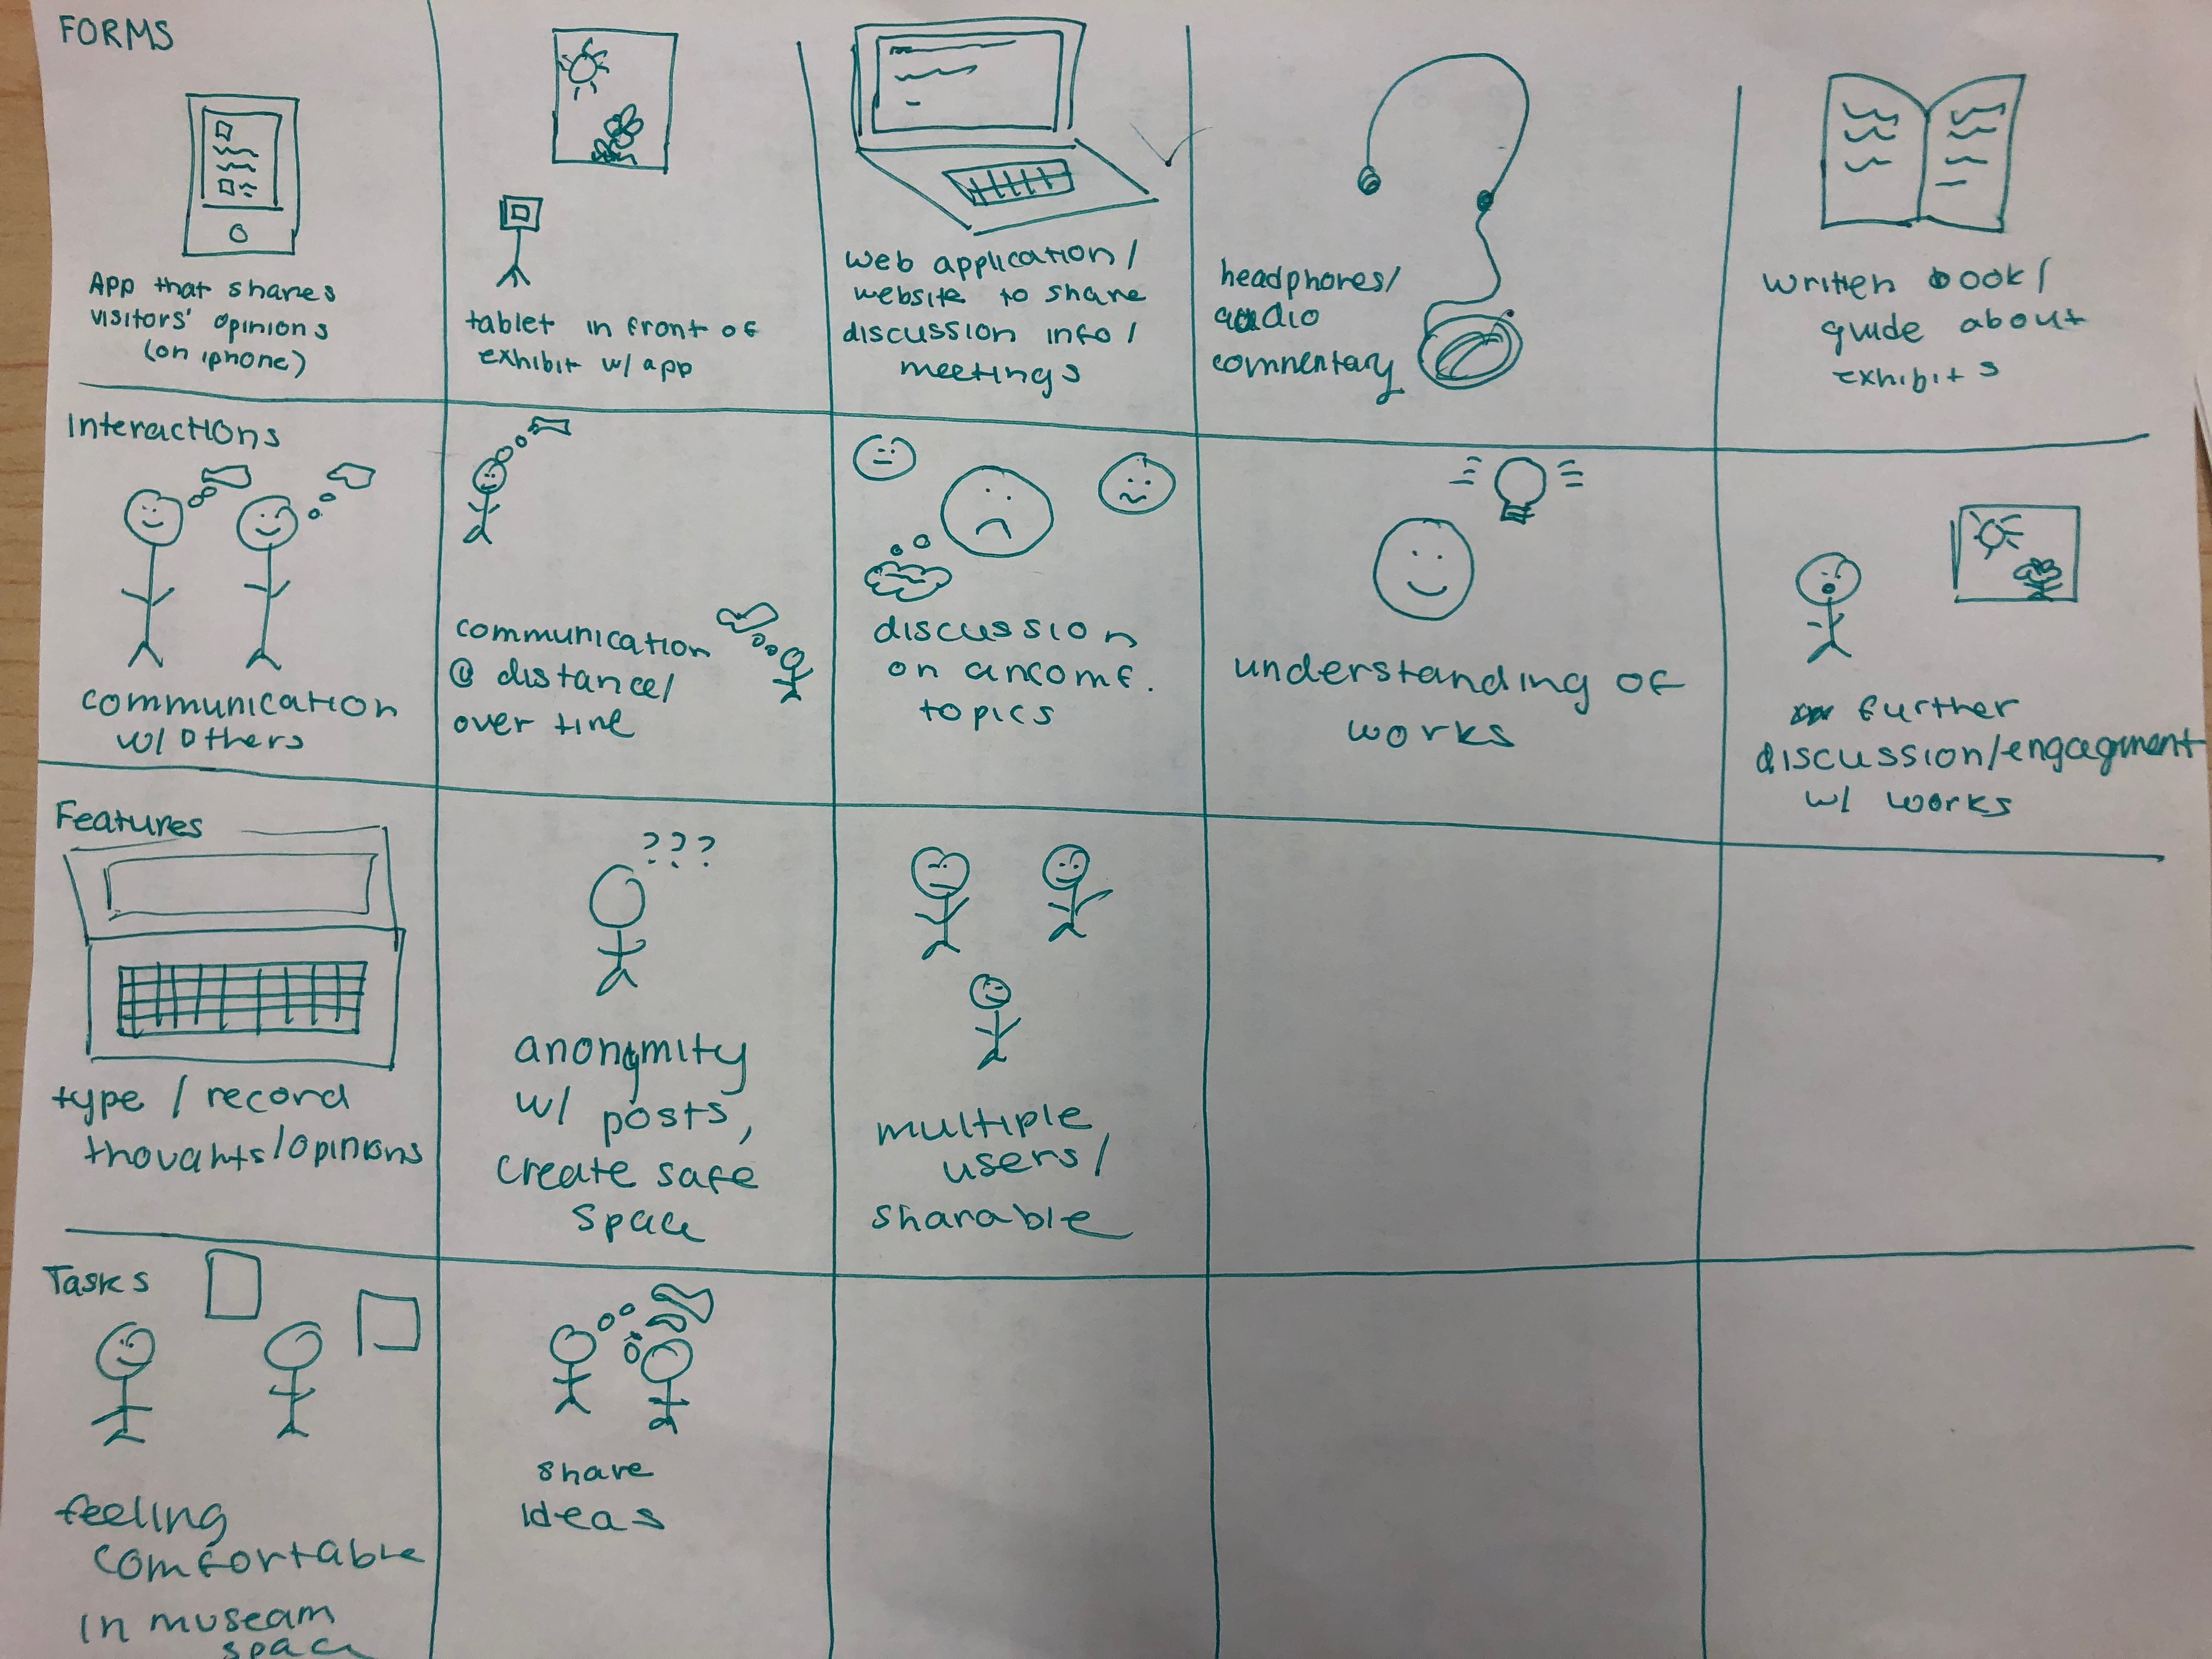 FORMS
App that shares
visitors' opinions
(on iphone)
tablet in front of
exhibit w/ app
web application/
website to share
discussion info/
meetings
headphones/
audio
commentary
written book/
guide about
exhibits
Interactions
communication
w/ others
communication
@ distance/
over time
discussion
on uncomf.
topics
understanding of
works
further
discussion/engagement
w/ works
Features
type / record
thougahts/opinions
anonymity
w/ posts,
create safe
space
???
multiple
users/
sharable
Tasks
feeling
comfortable
in museam
space
share
ideas